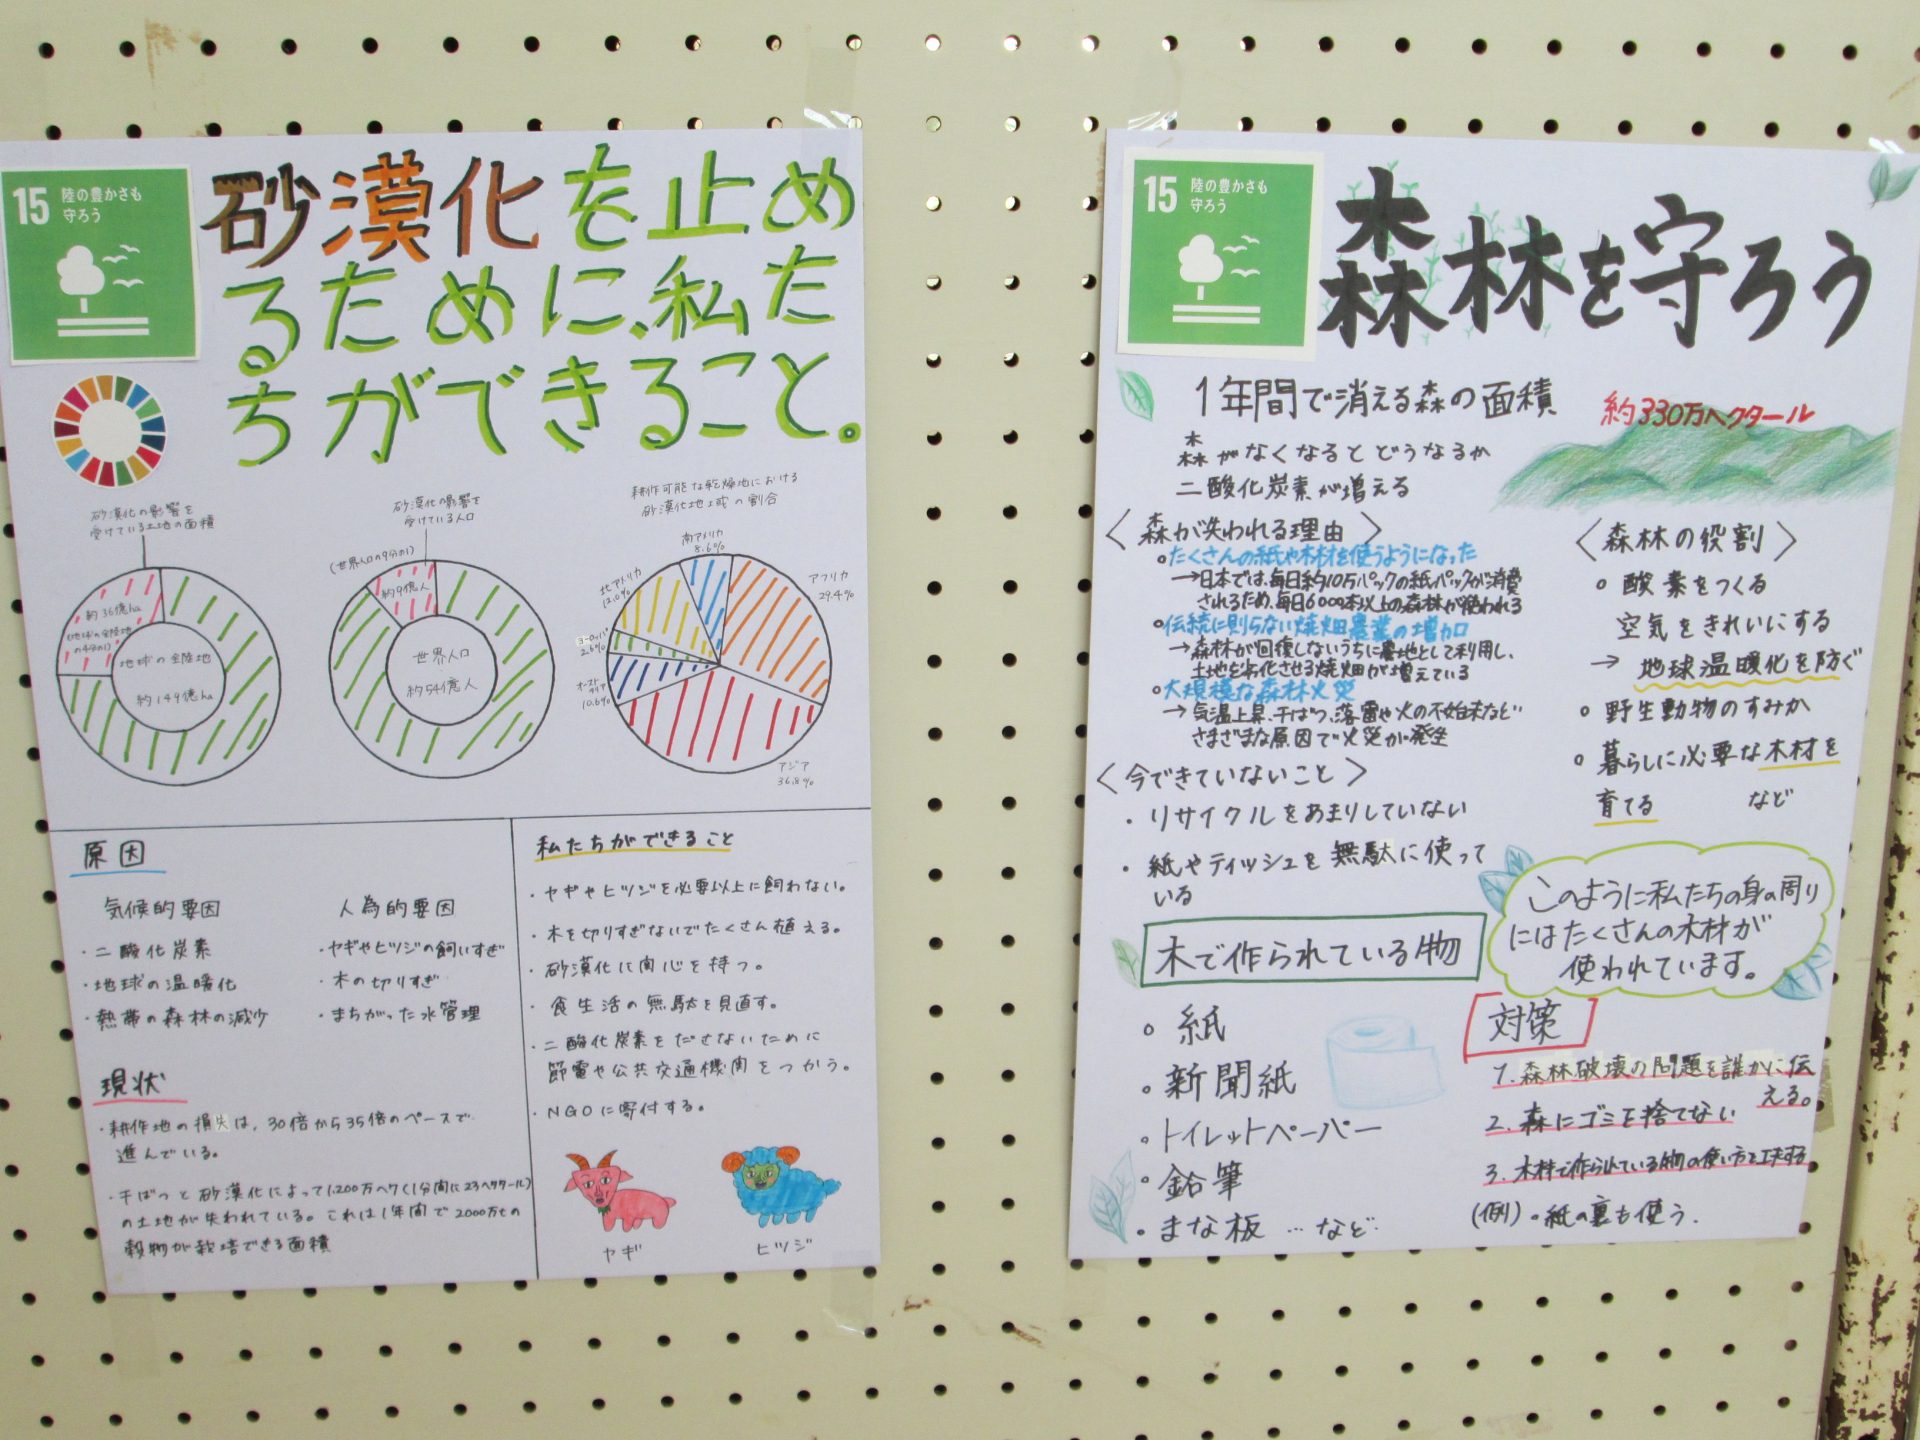 15 陸の豊かさも
守ろう
砂漠化を止め
るために、私た
ちができること。
砂漠化の影響を
受けている土地の面積
約36億ha
(地球の全陸地
の4分の1)
地球の全陸地
約149億ha
砂漠化の影響を
受けている人口
(世界人口の9分の1)
約9億人
世界人口
約54億人
耕作可能な乾燥地における
砂漠化地域の割合
南アメリカ
8.6%
アフリカ
29.4%
北アメリカ
12.0%
ヨーロッパ
2.6%
オースト
ラリア
10.6%
アジア
36.8%
原因
気候的要因
・二酸化炭素
・地球の温暖化
・熱帯の森林の減少
人為的要因
・ヤギやヒツジの飼いすぎ
・木の切りすぎ
・まちがった水管理
現状
・耕作地の損失は、30倍から35倍のペースで
進んでいる。
・干ばつと砂漠化によって1,200万ヘク(1分間に23ヘクタール)
の土地が失われている。これは1年間で2000万tの
穀物が栽培できる面積
私たちができること
・ヤギやヒツジを必要以上に飼わない。
・木を切りすぎないでたくさん植える。
・砂漠化に関心を持つ。
・食生活の無駄を見直す。
・二酸化炭素をださないために
節電や公共交通機関をつかう。
・NGOに寄付する。
ヤギ
ヒツジ
15 陸の豊かさも
守ろう
森林を守ろう
1年間で消える森の面積
約330万ヘクタール
森がなくなるとどうなるか
二酸化炭素が増える
〈森が失われる理由〉
○たくさんの紙や木材を使うようになった
→日本では、毎日約10万パックの紙パックが消費
されるため、毎日6000本以上の森林が使われる
○伝統に則らない焼畑農業の増加
→森林が回復しないうちに農地として利用し、
土地を劣化させる焼畑が増えている
○大規模な森林火災
→気温上昇、干ばつ、落雷や火の不始末など
さまざまな原因で火災が発生
〈今できていないこと〉
・リサイクルをあまりしていない
・紙やティッシュを無駄に使って
いる
〈森林の役割〉
○酸素をつくる
空気をきれいにする
→地球温暖化を防ぐ
○野生動物のすみか
○暮らしに必要な木材を
育てる など
このように私たちの身の周り
にはたくさんの木材が
使われています。
木で作られている物
○紙
○新聞紙
○トイレットペーパー
○鉛筆
・まな板 …など
対策
1.森林破壊の問題を誰かに伝
える。
2.森にゴミを捨てない
3.木材で作られている物の使い方を工夫する
(例)○紙の裏も使う.